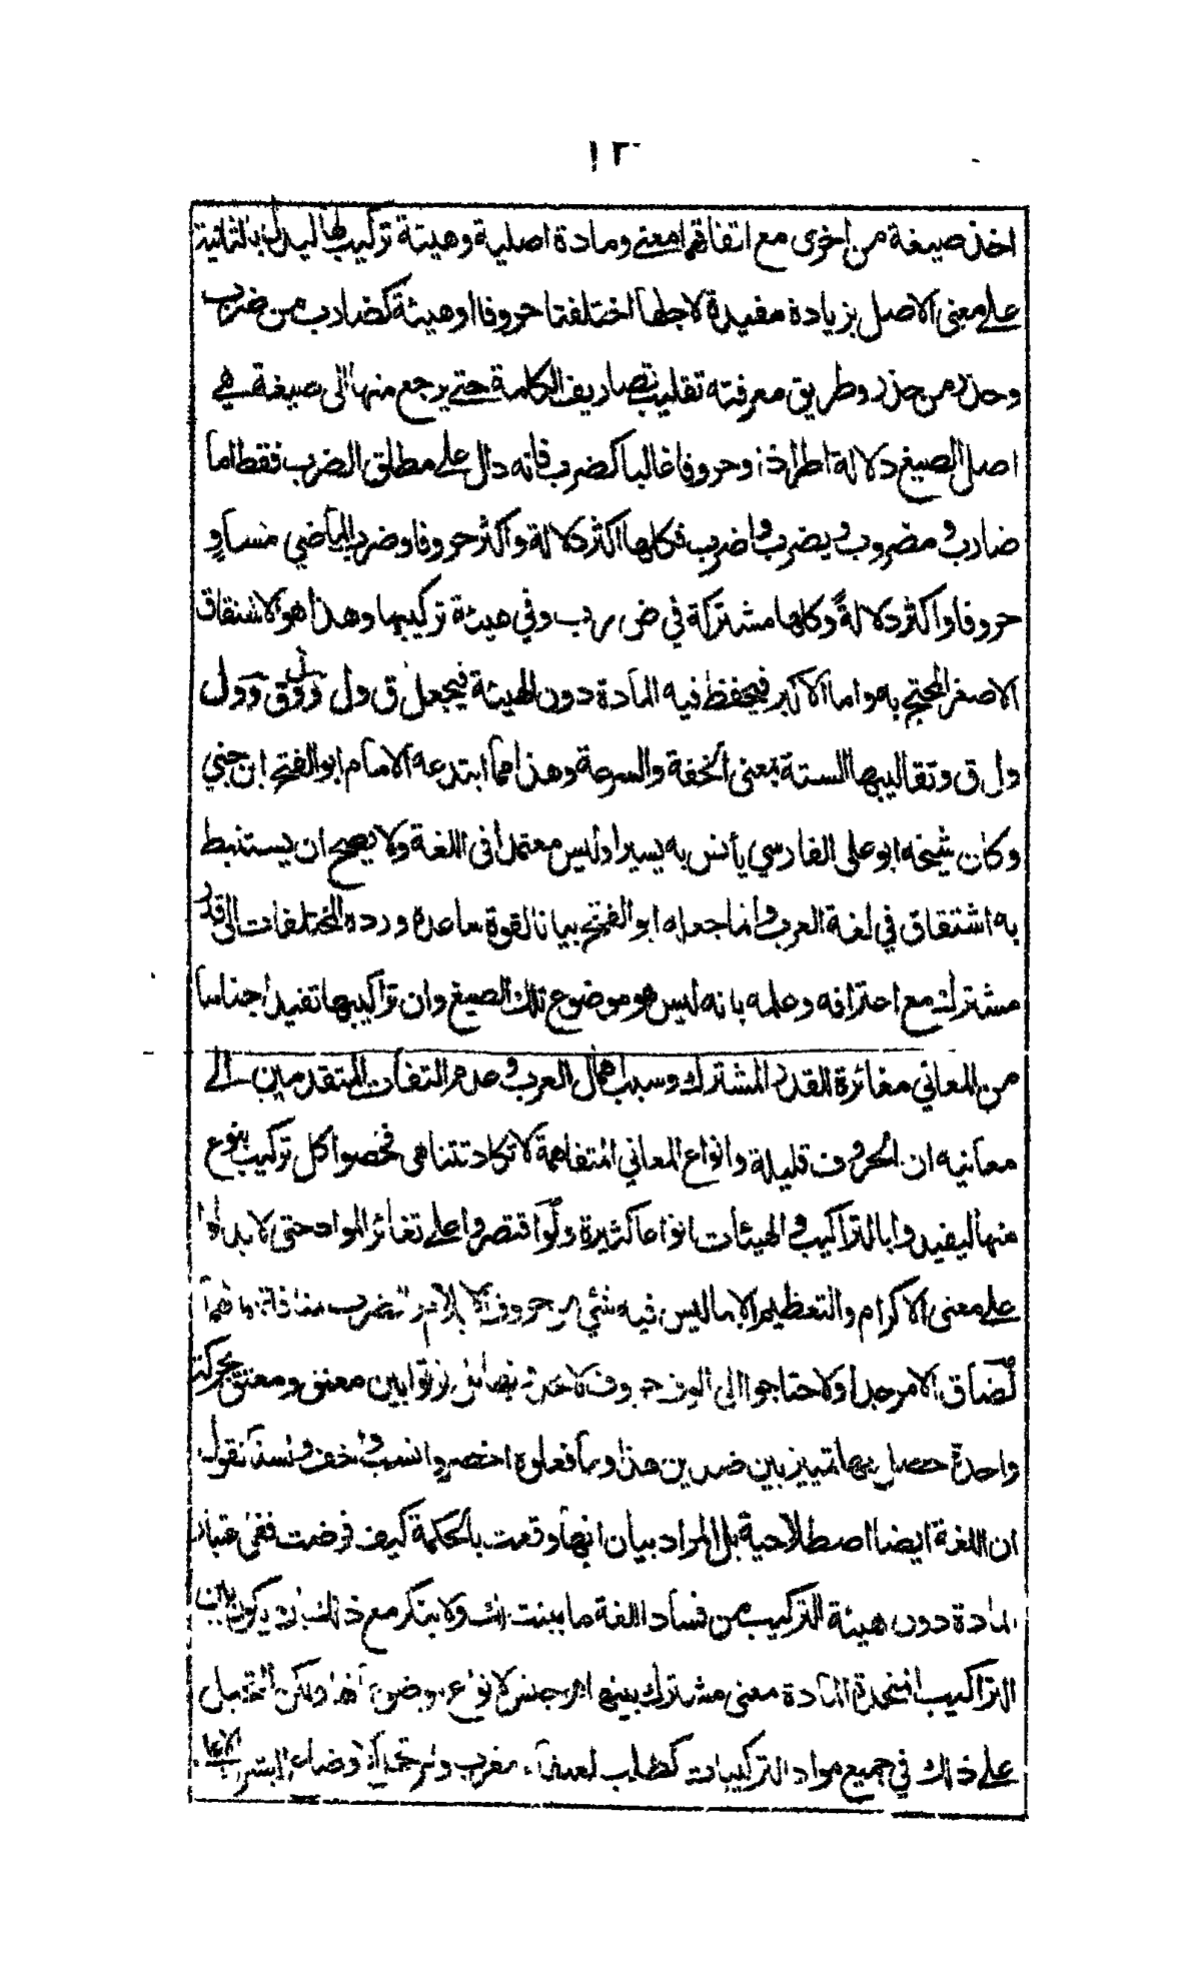 ١٢٠
اخذ صيغة من اخرى مع اتفاقهما معنى ومادة اصلية وهيئة تركيب لها ليدل بالثانية
على معنى الاصل بزيادة مفيدة لاجلها اختلفتا حروفا او هيئة كضارب من ضرب
وحذر من حذر وطريق معرفته تقليب تصاريف الكلمة حتى يرجع منها الى صيغة هي
اصل الصيغ دلالة اطراد وحروفا غالبا كضرب فانه دال على مطلق الضرب فقط اما
ضارب ومضروب ويضرب واضرب فكلها اكثر دلالة واكثر حروفا وضرب الماضي مساو
حروفا واكثر دلالة وكلها مشتركة في ض ر ب وفي هيئة تركيبها وهذا هو الاشتقاق
الاصغر المحتج به واما الاكبر فيحفظ فيه المادة دون الهيئة فيجعل ق ول و وق ل وول
ول ق وتقاليبها الستة بمعنى الخفة والسرعة وهذا مما ابتدعه الامام ابو الفتح ابن جني
وكان شيخه ابو على الفارسي يأنس به يسيرا وليس معتمدا في اللغة ولا يصح ان يستنبط
به اشتقاق في لغة العرب وانما جعله ابو الفتح بيانا لقوة ساعده ورده المختلفات الى قدر
مشترك مع اعترافه وعلمه بانه ليس هو موضوع تلك الصيغ وان تراكيبها تفيد اجناسا
من المعاني مغائرة للقدر المشترك وسبب اهمال العرب وعدم التفات المتقدمين الى
معانيه ان الحروف قليلة وانواع المعاني المتفاهمة لا تكاد تتناهى فخصوا كل تركيب بنوع
منها ليفيدوا بالتراكيب والهيئات انواعا كثيرة ولو اقتصروا على تغائر المواد حتى لا يدلوا
على معنى الاكرام والتعظيم الا بما ليس فيه شئي من حروف الايلام والضرب منافاتهما لهما
لضاق الامر جدا ولاحتاجوا الى الوف حروف لا يجدونها بل فرقوا بين معتق ومعتق بحركة
واحدة حصل بها تمييز بين ضدين هذا وما فعلوه اخصر وانسب واخف ولسنا نقول
ان اللغة ايضا اصطلاحية بل المراد بيان انها وقعت بالحكمة كيف فرضت ففي اعتبار
المادة دون هيئة التركيب من فساد اللغة ما بينت لك ولا ينكر مع ذلك ان يكون بين
التراكيب المتحدة المادة معنى مشترك بينها هو جنس لانواع موضوعاتها ولكن التحيل
على ذلك في جميع مواد التركيبات كطلب لعنقاء مغرب ولم تحمل الاوضاع البشرية الا على